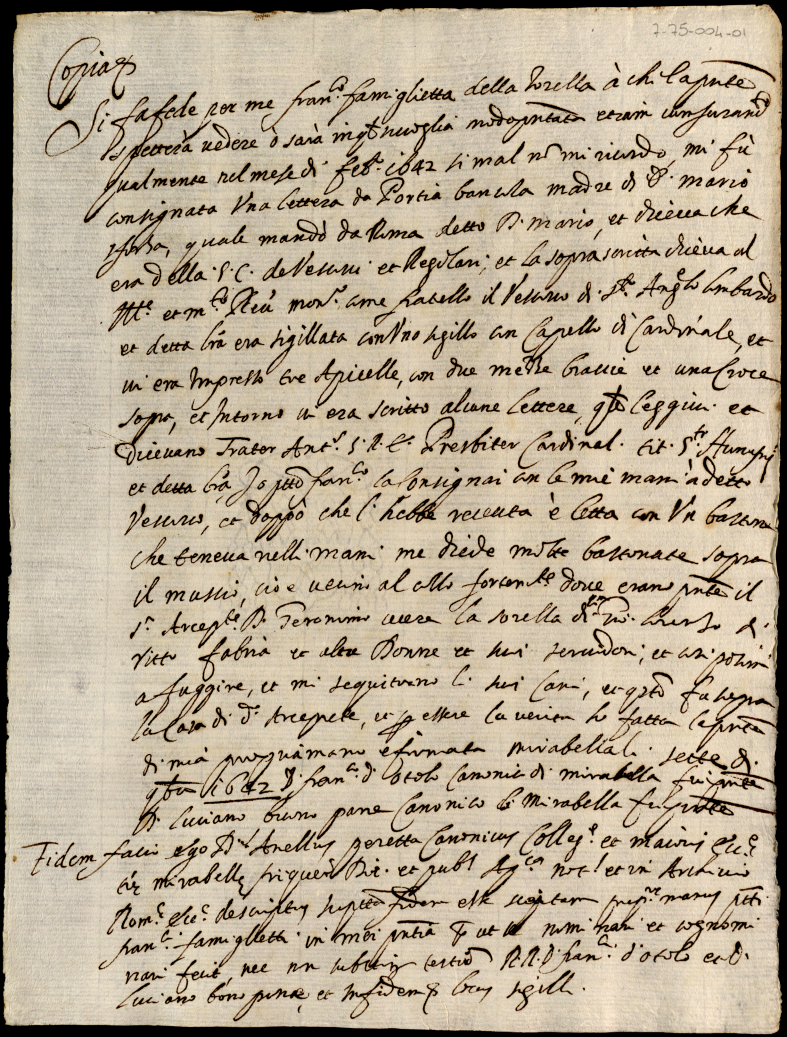 7-75-004-01
Copia
Si fa fede per me Fran.co famiglietta della Torella à chi la pnte
spetterà vedere ò sarà in qualsivoglia modo pntata etiam con giuram.to
qualmente nel mese di feb.o 1642 si mal nõ mi ricordo, mi fù
consignata Una lettera da Portia madre di D. Mario
quale mandò da Roma detto D. Mario, et diceva che
era della S. C. de Vescovi et Regolari; et la soprascritta diceva al
Ill.e et m.to R.do mons.r come fratello il Vescovo di S.to Ang.lo Lombardo
et detta lrã era sigillata con Uno sigillo con Capello di Cardinale, et
vi era Impresso tre Apicelle, con due mezze braccie et una Croce
sopra, et Intorno vi era scritto alcune lettere, q.li leggivi et
dicevano Frater Ant.s S. R. E. Presbiter Cardinal. tit. S.ti
et detta lrã Io ptto Fran.co la Consignai con le mie mani à detto
Vescovo, et doppò che l'hebbe receuta è letta con Un bastone
che teneva nelli mani me diede molte bastonate sopra
il musso, cioè vicino al collo fortem.te dove erano pnte il
S.r Arcep.te D. Geronimo la sorella di
Vitto Fabria et altre Donne et suoi servidori, et
a fuggire, et mi sequitorno li suoi Cani, et q.sto fu sopra
la Casa di d.o Arceprete, et per essere la verità ho fatta la pnte
di mia propria mano è firmata Mirabella li sette di
1642 D. Fran.co d'Otolo Canonico di Mirabella fui pnte
D. Luciano buono pane Canonico de Mirabella fui pnte
Fidem facio ego D.r Anellus peretta Canonicus Colleg.e et maioris Ecc.e
mirabelle et publ. Ap.ca not.s et in Archivio
Rom.e descriptus suptta fidem esse scriptam propr.e manus ptti
Fran.ci famiglietti in mei pntia et cognomi
nari fecit, nec nõ R.R. D. Fran.ci d'Otolo et D.
Luciano bono pane, et In fidem locus sigilli.